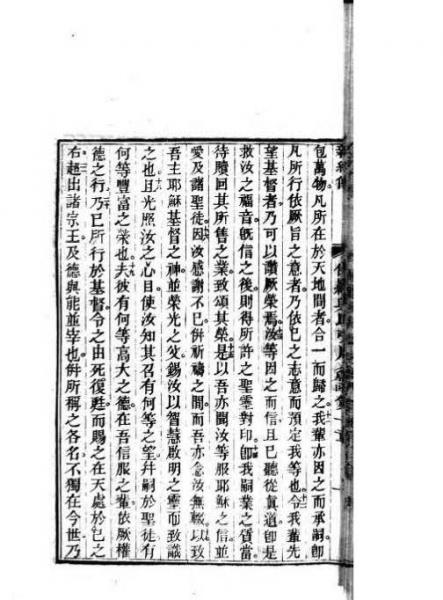 包萬物凡所在於天地間者合一而歸之我輩亦因之而承嗣卽
凡所行依厥旨之意者乃依己之志意而預定我等也令我輩先
望基督者乃可以讚厥榮焉汝等因之而信且已聽從眞道卽是
救汝之福音旣信之後則得所許之聖靈對印卽我嗣業之質當
待贖回其所售之業致頌其榮是以吾亦聞汝等服耶穌之信並
愛及諸聖徒因汝感謝不已併祈禱之間而吾亦念汝無輟以致
吾主耶穌基督之神並榮光之父錫汝以智慧啟明之靈而致識
之也且光照汝之心目使汝知其召有何等之望幷嗣於聖徒有
何等豐富之榮也夫彼有何等高大之德在吾信服之輩依厥權
德之行乃已所行於基督令之由死復甦而賜之在天處於己之
右超出諸宗王及德與能並宰也併所稱之各名不獨在今世乃